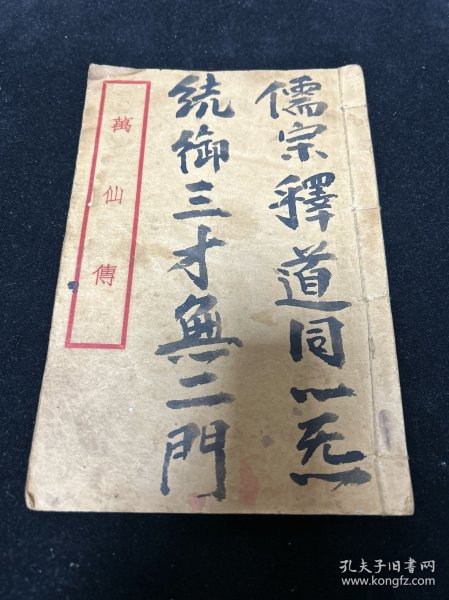 儒宗釋道同一炁
統御三才無二門
萬仙傳
孔夫子旧书网
www.kongfz.com